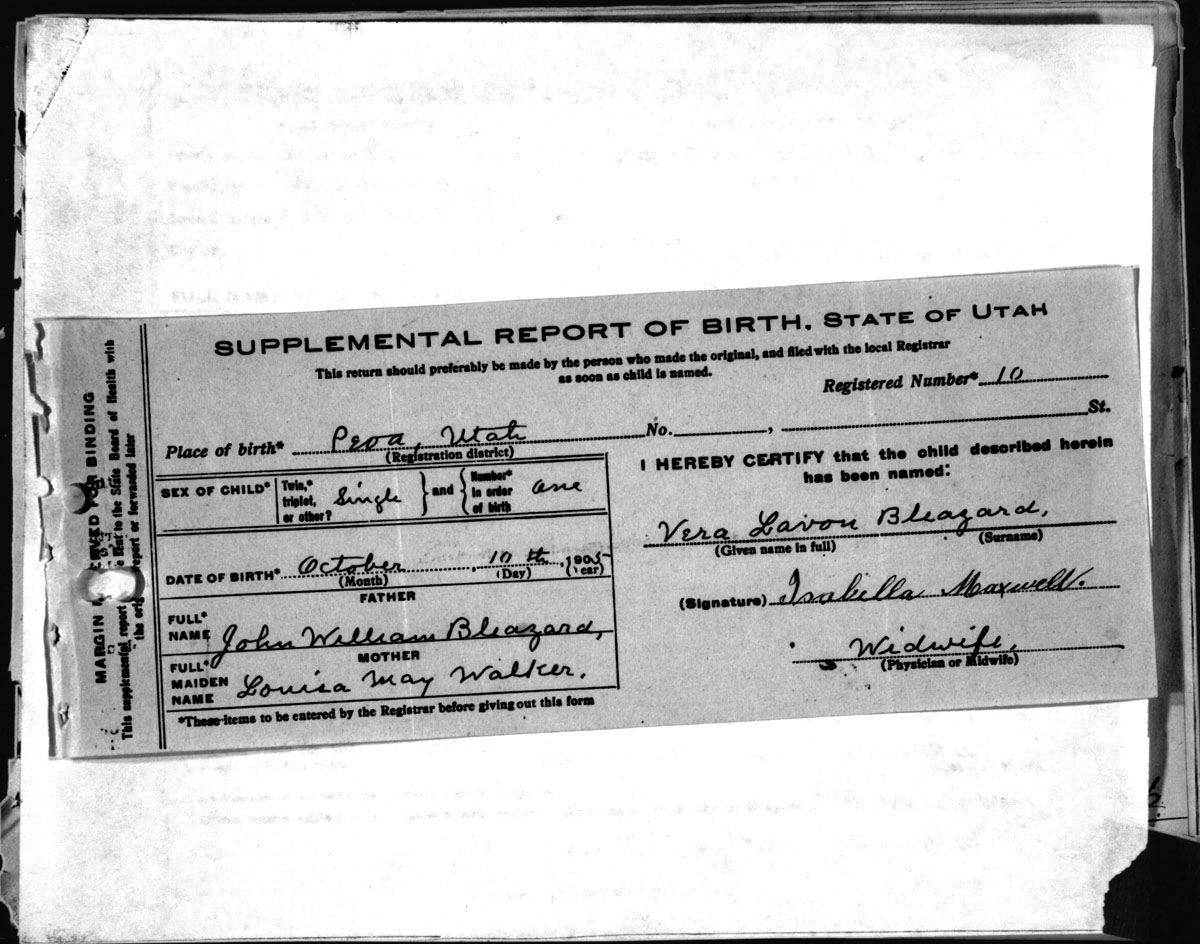 SUPPLEMENTAL REPORT OF BIRTH. STATE OF UTAH
This return should preferably be made by the person who made the original, and filed with the local Registrar
as soon as child is named.
Registered Number* 10
Place of birth* Peoa, Utah No. , St.
(Registration district)
SEX OF CHILD* Twin,* triplet, or other? Single and Number* in order of birth One
DATE OF BIRTH* October, 10th, 1905
(Month) (Day) (Year)
FATHER
FULL* NAME John William Bleazard,
MOTHER
FULL* MAIDEN NAME Louisa May Walker.
*These items to be entered by the Registrar before giving out this form
I HEREBY CERTIFY that the child described herein
has been named:
Vera Lavon Bleazard,
(Given name in full) (Surname)
(Signature) Isabella Maxwell.
Widwife,
(Physician or Midwife)
MARGIN RESERVED FOR BINDING
This supplemental report sent to the State Board of Health with
the original report or forwarded later